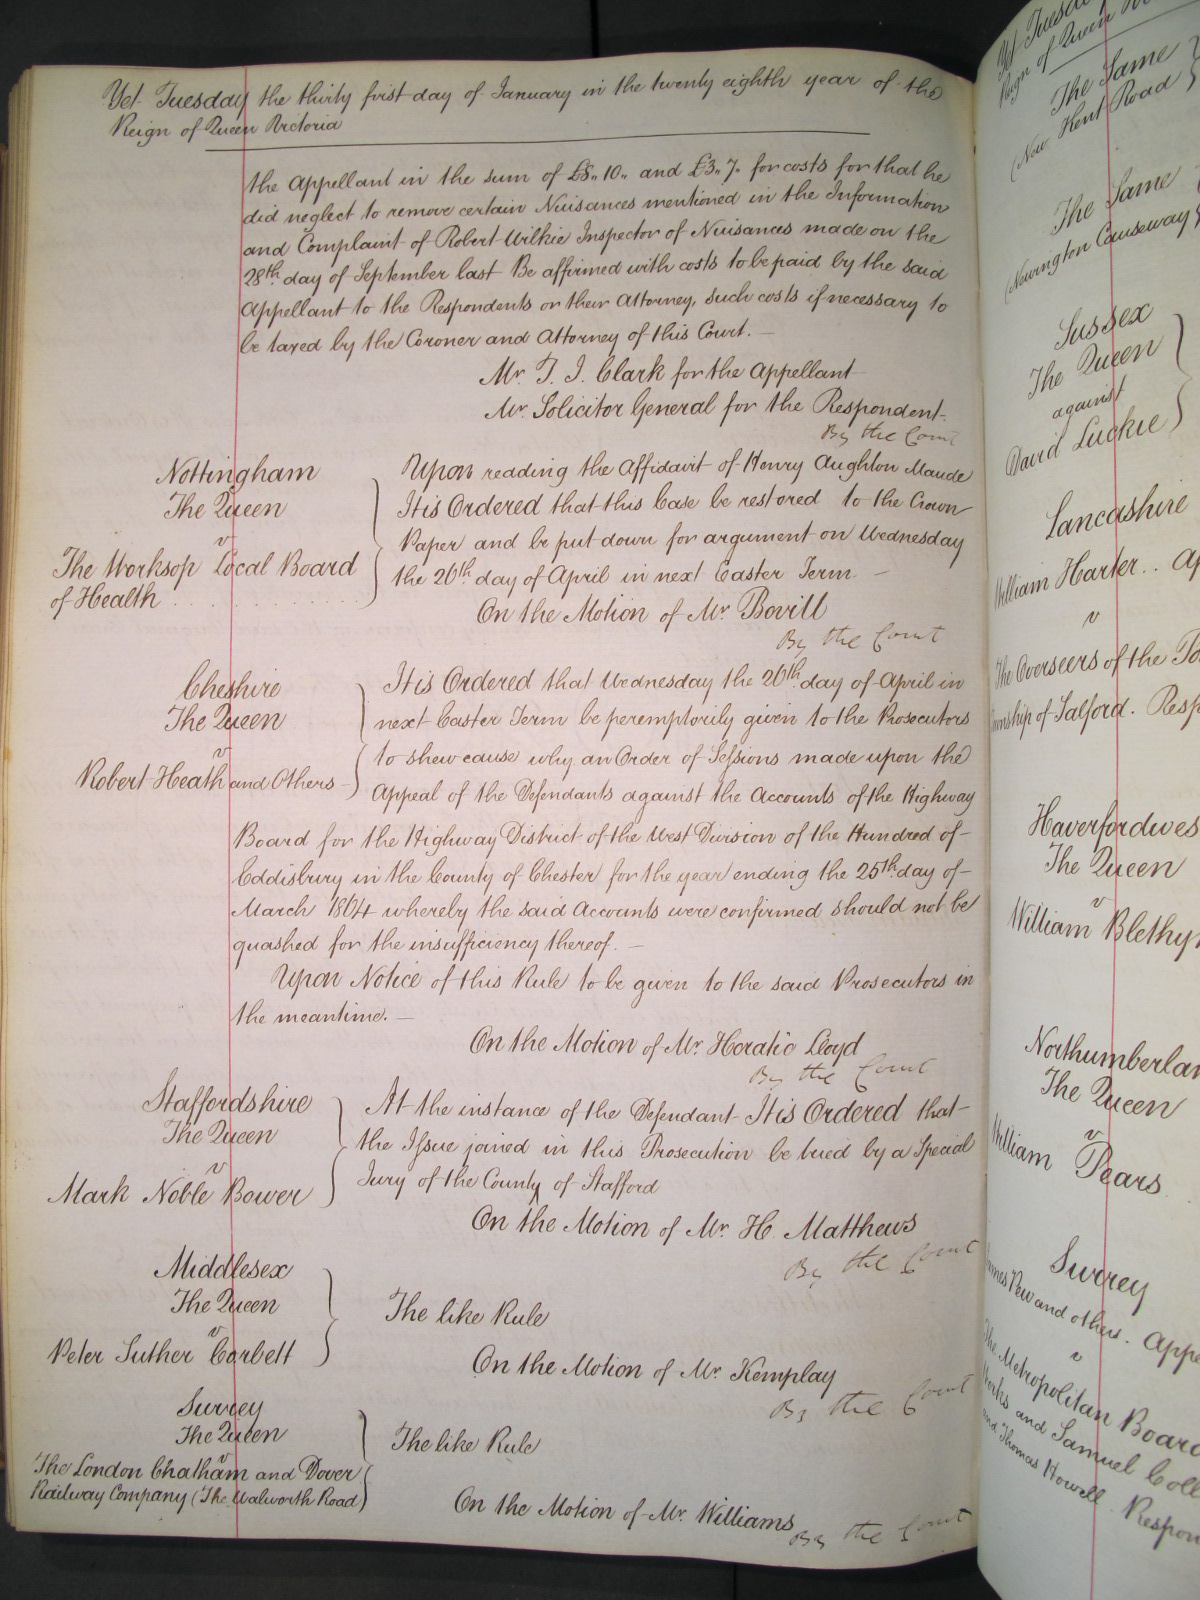 Yet Tuesday the thirty first day of January in the twenty eighth year of the
Reign of Queen Victoria
the Appellant in the sum of £8.. 10.. and £3.. 7. for costs for that he
did neglect to remove certain Nuisances mentioned in the Information
and Complaint of Robert Wilkie Inspector of Nuisances made on the
28th day of September last Be affirmed with costs to be paid by the said
Appellant to the Respondents or their Attorney, such costs if necessary to
be taxed by the Coroner and Attorney of this Court. —
Mr. T. J. Clark for the Appellant
Mr. Solicitor General for the Respondent.
By the Court
Nottingham
The Queen
v
The Worksop Local Board
of Health
Upon reading the Affidavit of Henry Aughton Maude
It is Ordered that this Case be restored to the Crown
Paper and be put down for argument on Wednesday
the 26th day of April in next Easter Term —
On the Motion of Mr. Bovill
By the Court
Cheshire
The Queen
v
Robert Heath and Others
It is Ordered that Wednesday the 26th day of April in
next Easter Term be peremptorily given to the Prosecutors
to shew cause why an Order of Sessions made upon the
Appeal of the Defendants against the Accounts of the Highway
Board for the Highway District of the West Division of the Hundred of
Eddisbury in the County of Chester for the year ending the 25th day of
March 1864 whereby the said Accounts were confirmed should not be
quashed for the insufficiency thereof. —
Upon Notice of this Rule to be given to the said Prosecutors in
the meantime. —
On the Motion of Mr. Horatio Lloyd
By the Court
Staffordshire
The Queen
v
Mark Noble Bower
At the instance of the Defendant It is Ordered that
the Issue joined in this Prosecution be tried by a Special
Jury of the County of Stafford
On the Motion of Mr. H. Matthews
By the Court
Middlesex
The Queen
v
Peter Suther Corbett
The like Rule
On the Motion of Mr. Kemplay
By the Court
Surrey
The Queen
v
The London Chatham and Dover
Railway Company (The Walworth Road)
The like Rule
On the Motion of Mr. Williams
By the Court
Yet Tuesday
Reign of Queen
The Same
(New Kent Road
The Same
(Newington Causeway
Sussex
The Queen
against
David Luckie
Lancashire
William Harter . .
v
The Overseers of the
of Salford.
The Queen
v
William
The Queen
v
William Pears
Surrey
and others.
v
The Metropolitan
and Samuel
and Thomas Howell